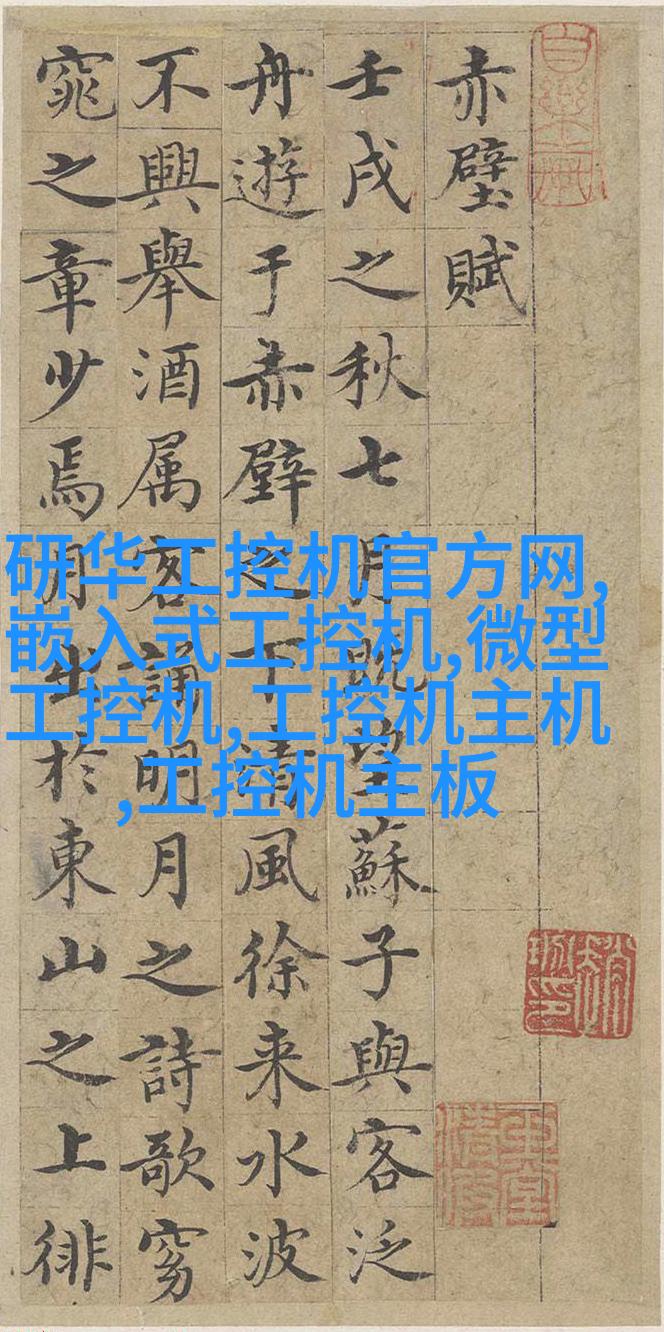 赤壁賦
壬戌之秋七月既望蘇子與客泛
舟遊于赤壁之下清風徐来水波
不興舉酒属客誦明月之詩歌窈
窕之章少焉月出於東山之上徘
研华工控机官方网,
嵌入式工控机,微型
工控机,工控机主机
,工控机主板